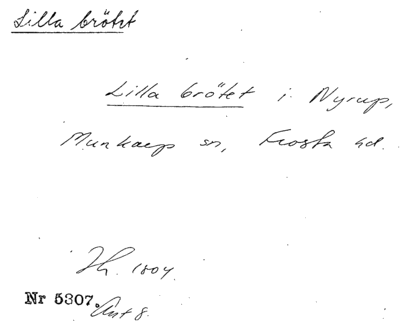 Lilla brötet
Lilla brötet i Nyrup,
Munkarp sn, Frosta hd.
1804.
Nr 5307.
Akt 8.